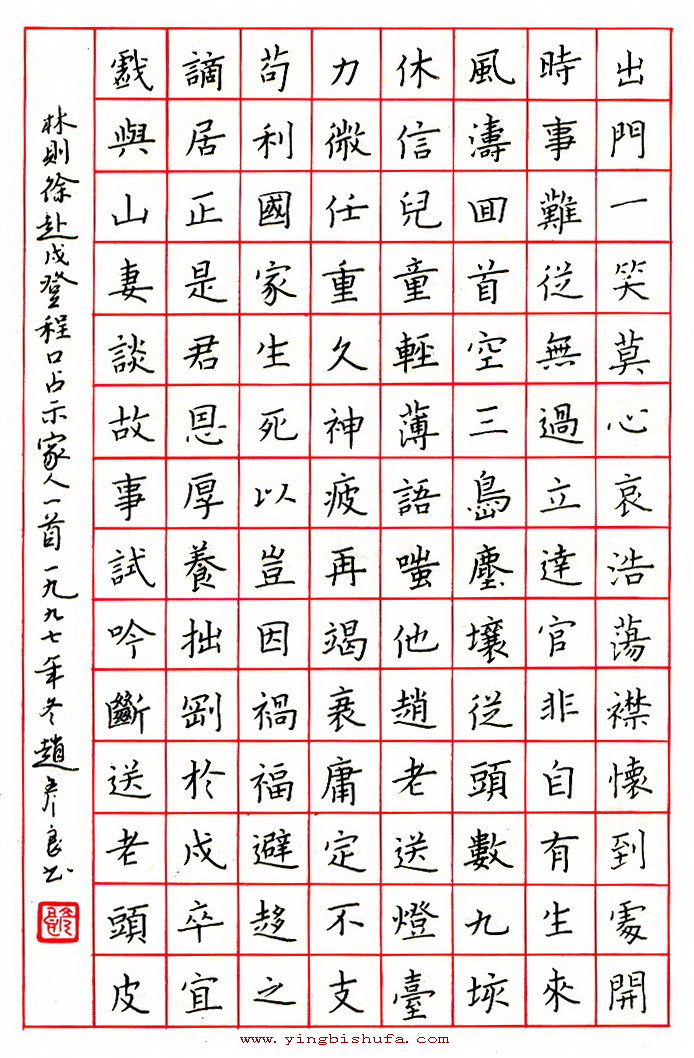 出門一笑莫心哀浩蕩襟懷到處開
時事難從無過立達官非自有生來
風濤回首空三島塵壤從頭數九垓
休信兒童輕薄語嗤他趙老送燈臺
力微任重久神疲再竭衰庸定不支
苟利國家生死以豈因禍福避趨之
謫居正是君恩厚養拙剛於戍卒宜
戲與山妻談故事試吟斷送老頭皮
林則徐赴戍登程口占示家人一首一九九七年冬趙彥良書
www.yingbishufa.com